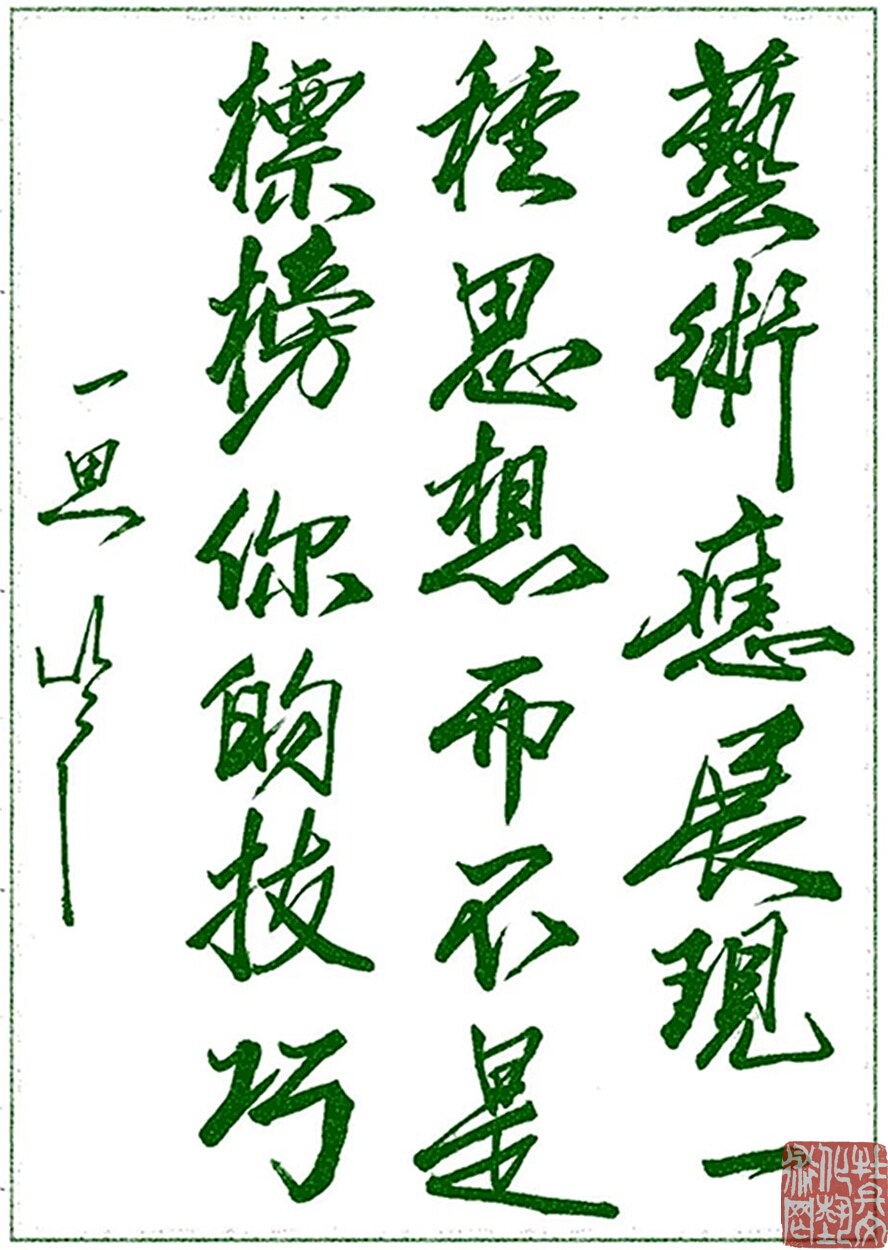 藝術應展現一
種思想而不是
標榜你的技巧